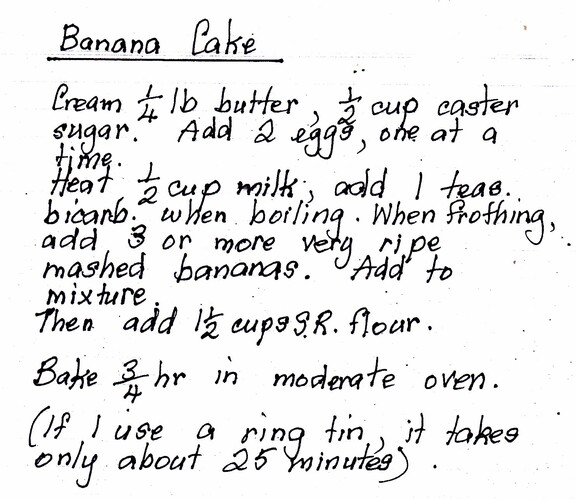 Banana Cake
Cream 1/4 lb butter, 1/2 cup caster
sugar. Add 2 eggs, one at a
time.
Heat 1/2 cup milk, add 1 teas.
bicarb. when boiling. When frothing,
add 3 or more very ripe
mashed bananas. Add to
mixture.
Then add 1 1/2 cups S.R. flour.
Bake 3/4 hr in moderate oven.
(If I use a ring tin, it takes
only about 25 minutes).